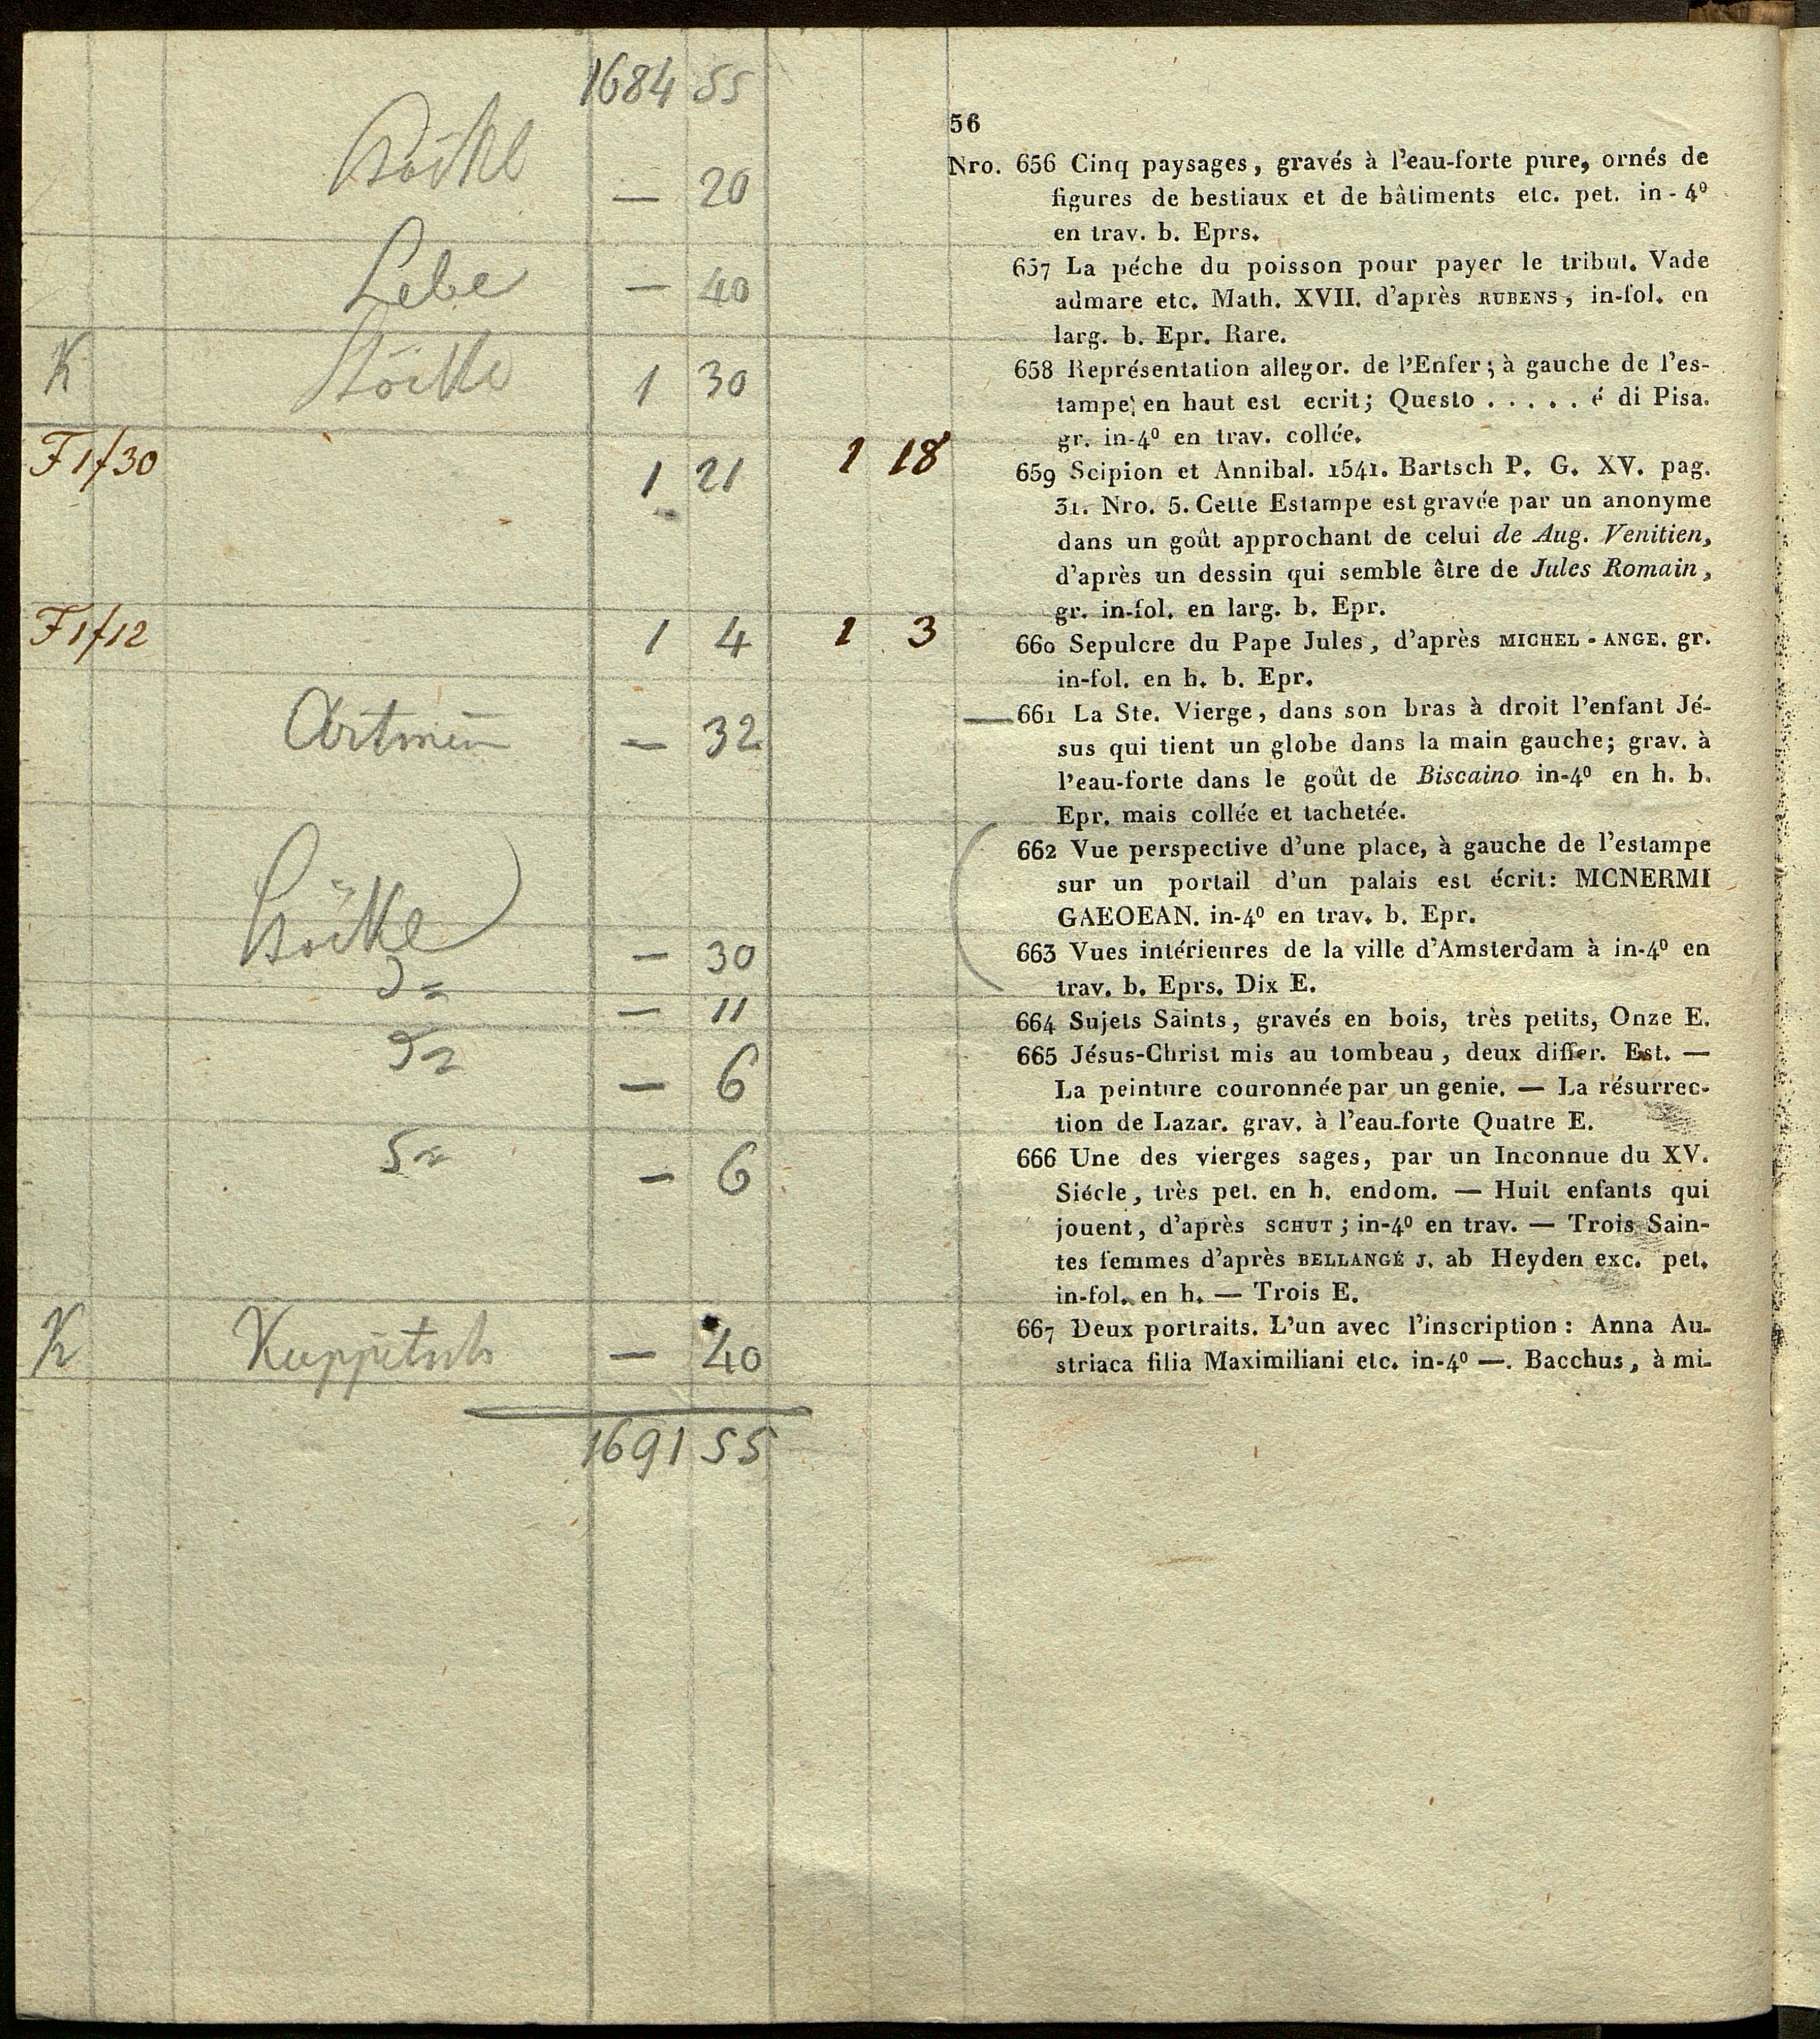 1684 55
Böckl — 20
Lebe — 40
K Böckl 1 30
F 1f30 1 21 1 18
F 1f12 1 4 1 3
— 32
Böckl — 30
— 11
— 6
— 6
K Kuppitsch — 40
1691 55
56
Nro. 656 Cinq paysages, gravés à l'eau-forte pure, ornés de
figures de bestiaux et de bâtiments etc. pet. in-4º
en trav. b. Eprs.
657 La péche du poisson pour payer le tribut. Vade
admare etc. Math. XVII. d'après RUBENS, in-fol. en
larg. b. Epr. Rare.
658 Représentation allegor. de l'Enfer; à gauche de l'es-
tampe; en haut est ecrit; Questo . . . . . é di Pisa.
gr. in-4º en trav. collée.
659 Scipion et Annibal. 1541. Bartsch P. G. XV. pag.
31. Nro. 5. Cette Estampe est gravée par un anonyme
dans un goût approchant de celui de Aug. Venitien,
d'après un dessin qui semble être de Jules Romain,
gr. in-fol. en larg. b. Epr.
660 Sepulcre du Pape Jules, d'après MICHEL-ANGE. gr.
in-fol. en h. b. Epr.
661 La Ste. Vierge, dans son bras à droit l'enfant Jé-
sus qui tient un globe dans la main gauche; grav. à
l'eau-forte dans le goût de Biscaino in-4º en h. b.
Epr. mais collée et tachetée.
662 Vue perspective d'une place, à gauche de l'estampe
sur un portail d'un palais est écrit: MCNERMI
GAEOEAN. in-4º en trav. b. Epr.
663 Vues intérieures de la ville d'Amsterdam à in-4º en
trav. b. Eprs. Dix E.
664 Sujets Saints, gravés en bois, très petits, Onze E.
665 Jésus-Christ mis au tombeau, deux differ. Est. —
La peinture couronnée par un genie. — La résurrec-
tion de Lazar. grav. à l'eau-forte Quatre E.
666 Une des vierges sages, par un Inconnue du XV.
Siécle, très pet. en h. endom. — Huit enfants qui
jouent, d'après SCHUT; in-4º en trav. — Trois Sain-
tes femmes d'après BELLANGÉ J. ab Heyden exc. pet.
in-fol. en h. — Trois E.
667 Deux portraits. L'un avec l'inscription: Anna Au-
striaca filia Maximiliani etc. in-4º —. Bacchus, à mi-